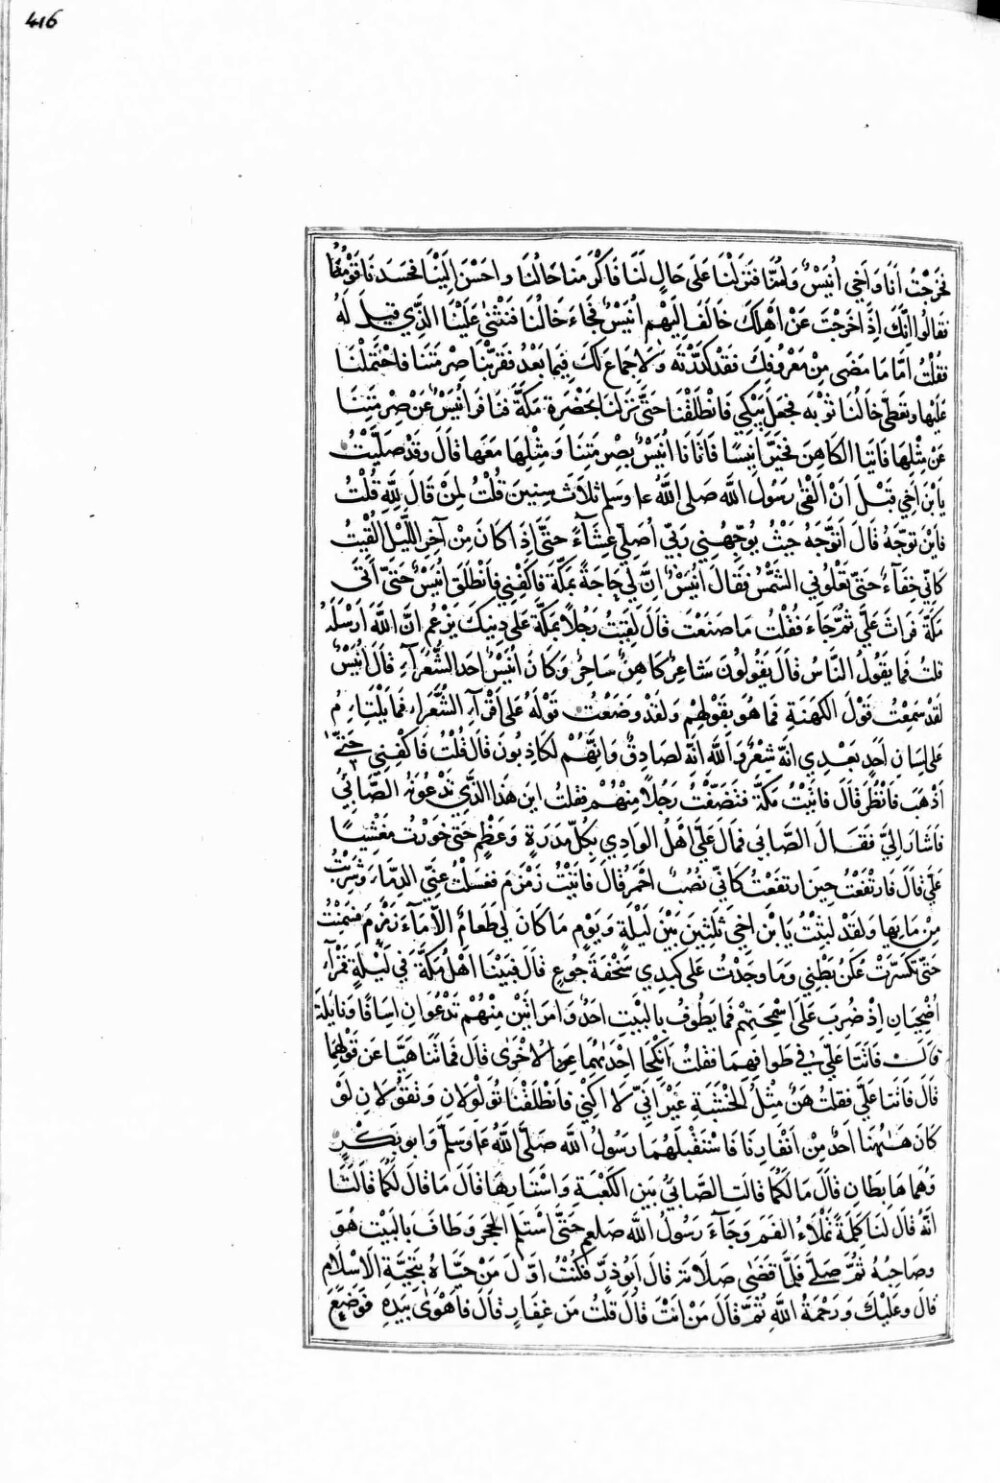 416
فخرجت أنا وأخي أُنَيْسٌ وأمّنا فنزلنا على خالٍ لنا فأكرمنا خالنا واحسن الينا فحسدنا قومه
فقالوا انّك اذا خرجت عن أهلك خالف إليهم أنيسٌ فجاء خالنا فنثى علينا الذي قيل له
فقلت امّا ما مضى من معروفك فقد كدّرته ولا جماع لك فيما بعد فقرّبنا صرمتنا فاحتملنا
عليها وتغطى خالنا ثوبه فجعل يبكي فانطلقنا حتى نزلنا بحضرة مكّة فنافر أنيسٌ عن صرمتنا
عن مثلها فاتيا الكاهن فخيّر انيسًا فاتانا انيسٌ بصرمتنا ومثلها معها قال وقد صلّيت
يابن اخي قبل ان القى رسول الله صلى الله عا وسلم ثلاث سنين قلت لمن قال لله قلت
فاين توجّه قال اتوجّه حيث يوجّهني ربّي أصلّي عشآءً حتّى اذا كان من آخر الليل القيت
كانّي خفآءٌ حتّى تعلوني الشمس فقال أنيسٌ انّ لي حاجةً بمكّة فاكفني فانطلق أنيسٌ حتى أتى
مكّة فراث عليّ ثمّ جآء فقلت ما صنعت قال لقيت رجلًا بمكّة على دينك يزعم انّ الله أرسله
قلت فما يقول الناس قال يقولون شاعرٌ كاهنٌ ساحرٌ وكان أنيسٌ احد الشعرآء قال أنيسٌ
لقد سمعت قول الكهنة فما هو بقولهم ولقد وضعت قوله على اقرآء الشعراء فما يلتايم
على لسان احدٍ بعدي انّه شعرٌ والله انّه لصادقٌ وانّهم لكاذبون قال قلت فاكفني حتّى
أذهب فانظر قال فاتيت مكّة فتضعّفت رجلًا منهم فقلت اين هذا الذي تدعونه الصّابي
فاشار اليّ فقال الصّابي فمال عليّ اهل الوادي بكلّ مدرةٍ وعظمٍ حتى خررت مغشيًا
عليّ قال فارتفعت حين ارتفعت كانّي نصبٌ احمر قال فاتيت زمزم فغسلت عنّي الدمآء وشربت
من مآيها ولقد لبثت يابن اخي ثلثين بين ليلةٍ ويومٍ ما كان لي طعامٌ الّا مآء زمزم فسمنت
حتّى تكسّرت عكن بطني وما وجدت على كبدي سخفة جوعٍ قال فبينا اهل مكّة في ليلةٍ قمرآء
اضحيان اذ ضرب على اسمختهم فما يطوف بالبيت احدٌ وامراتين منهم تدعوان اسافًا ونايلة
قال فاتتا عليّ في طوافهما فقلت انكحا احدٰهما الاخرى قال فما تناهيا عن قولهما
قال فاتتا عليّ فقلت هنٌ مثل الخشبة غير انّي لا اكني فانطلقتا تولولان وتقولان لو
كان هٰهنا احدٌ من انفارنا فاستقبلهما رسول الله صلى الله عا وسلم وابو بكرٍ
وهما هابطان قال ما لكما قالت الصّابيُ بين الكعبة واستارها قال ما قال لكما قالتا
انّه قال لنا كلمةً تملاء الفم وجآء رسول الله صلعم حتّى استلم الحجر وطاف بالبيت هو
وصاحبه ثمّ صلّى فلمّا قضى صلاته قال ابو ذرّ فكنت اوّل من حيّاه بتحيّة الاسلام
قال وعليك ورحمة الله ثمّ قال من انت قال قلت من غفارٍ قال فاهوى بيده فوضع